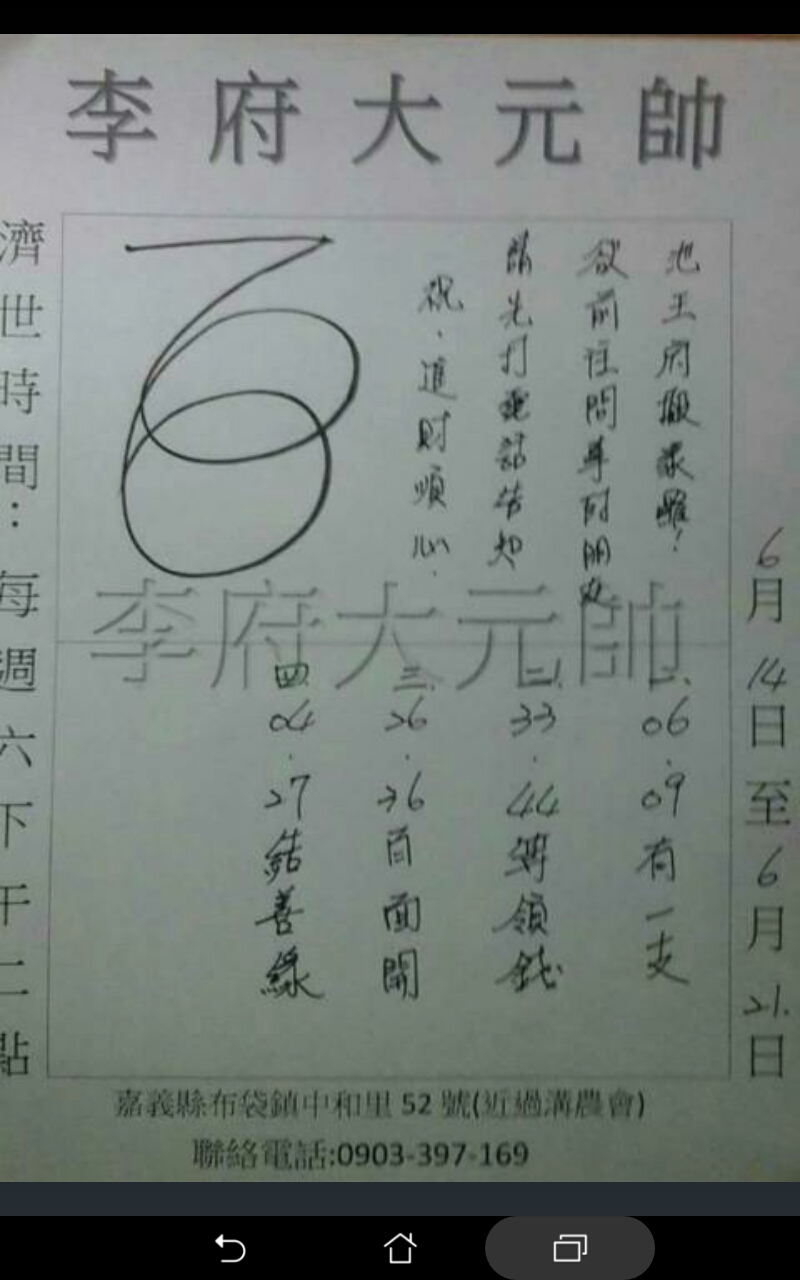 李府大元帥
池王府搬家囉!
欲前往問事附朋友
請先打電話告知
祝.進財順心.
李府大元帥
一.06.09有一支
二.33.44準領錢
三.26.36百面開
四.04.27結善緣
6月14日至6月21.日
濟世時間:每週六下午二點
嘉義縣布袋鎮中和里 52 號(近過溝農會)
聯絡電話:0903-397-169